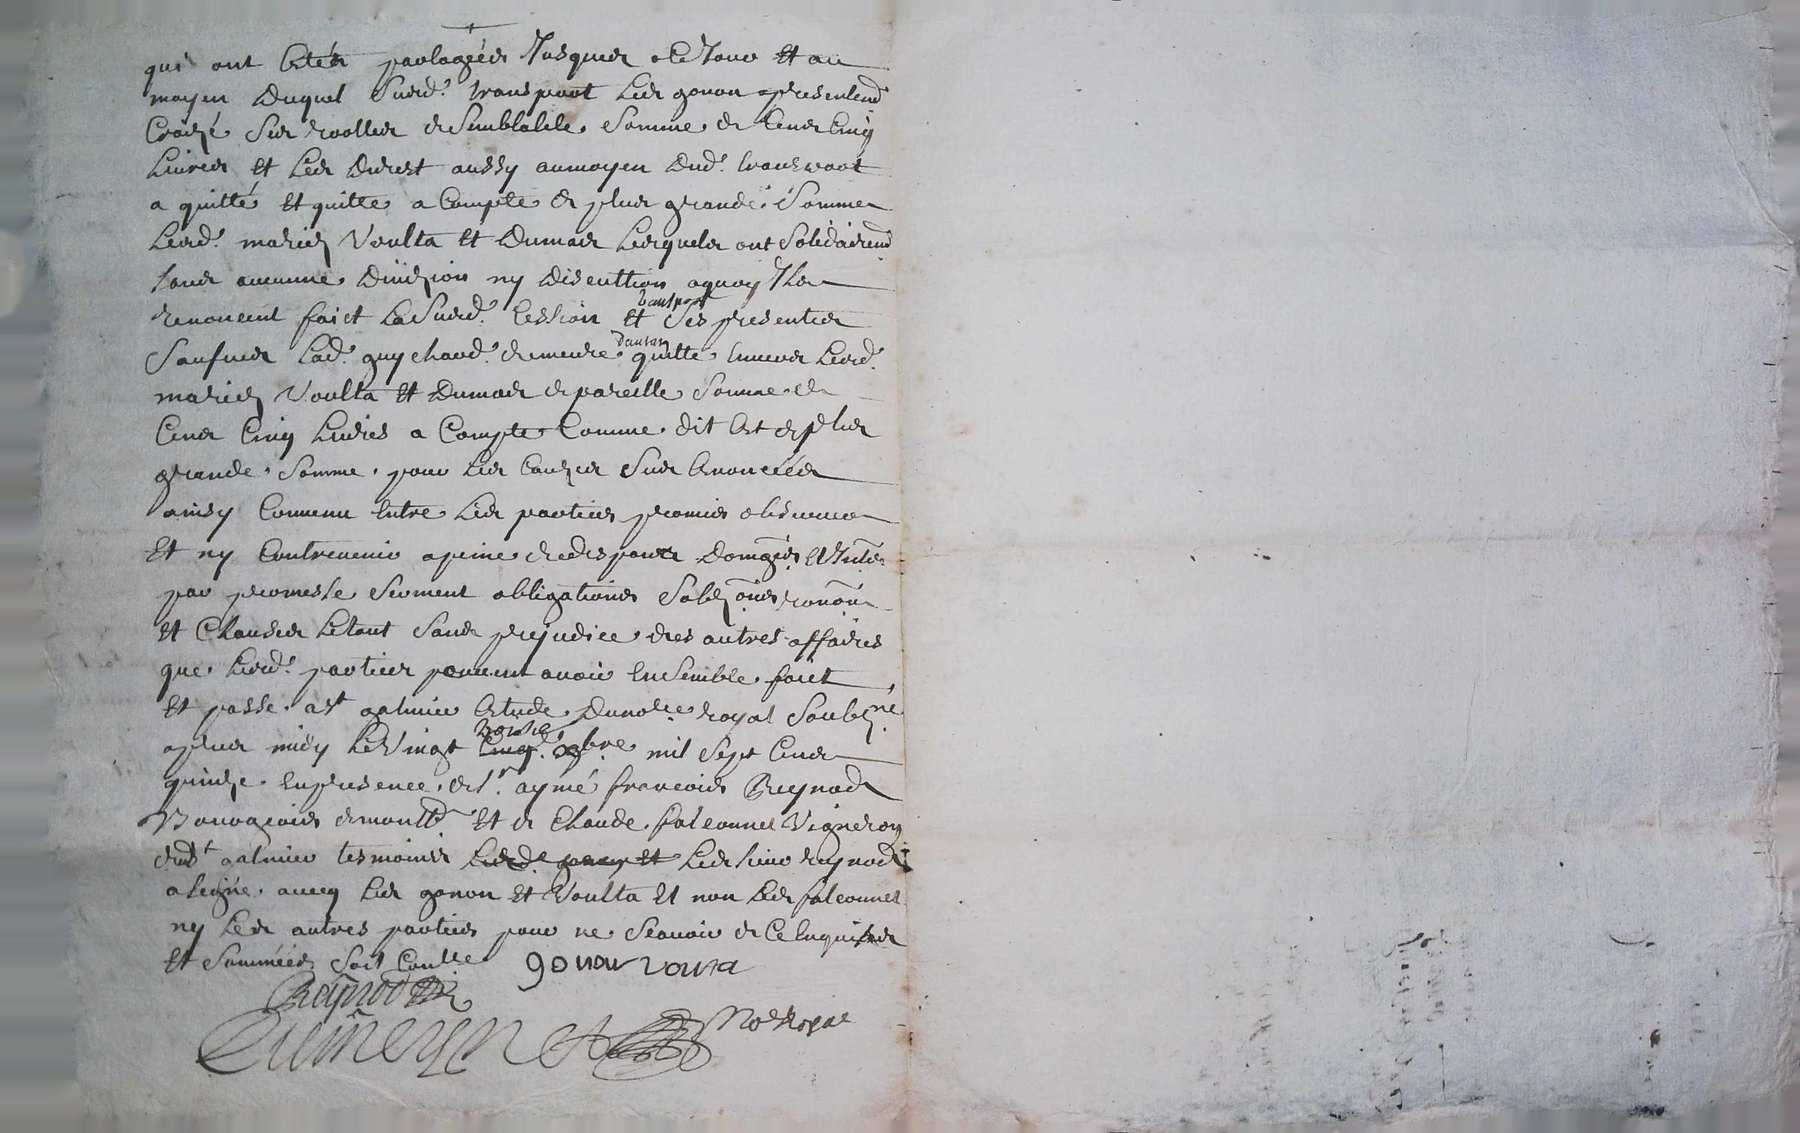 qui ont Estés partagées Jusques a Ce Jour Et au
moyen Duquel Susd. transport Led gonon
Sur rolles de Semblable Somme de Cent Cinq
Livres Et Led aussy au moyen Dud. transport
a quitté Et quitte a Compte de plus grande Somme
Lesd. mariés Voulta Et Dumas Lesquels ont Solidairemt
Sans aucune Division ny Discution aquoy Ils
renoncent faict La Susd. Cession Et transport Ses presentes
Lad. guychard demeure quitte Envers Lesd.
mariés Voulta Et Dumas de pareille Somme de
Cent Cinq Livres a Compte Comme dit Est de plus
grande Somme pour Les Causes Sus Enoncées
ainsy Convenu Entre Les parties promis observer
Et ny Contrevenir a peine de despans Domages Et
par promesse Serment obligations
Et Clauses Le tout Sans prejudice des autres affaires
que Lesd. parties peuvent avoir Ensemble faict
Et passé a St galmier Estude Du nore royal Soubzné
apres midy Le Vingt mil Sept Cent
quinze En presence de Sr. aymé francois Reynod
Bourgeois de Et de Claude faleonnet Vigneron
dud St galmier tesmoins Led Sieur reynod
a Signé avecq Led gonon Et Voulta Et non Led faleonnet
ny Les autres parties pour ne Scavoir de Ce Enquis
Et Sommées Soit Conllé gonon vouta
Reynod
Noe Royal